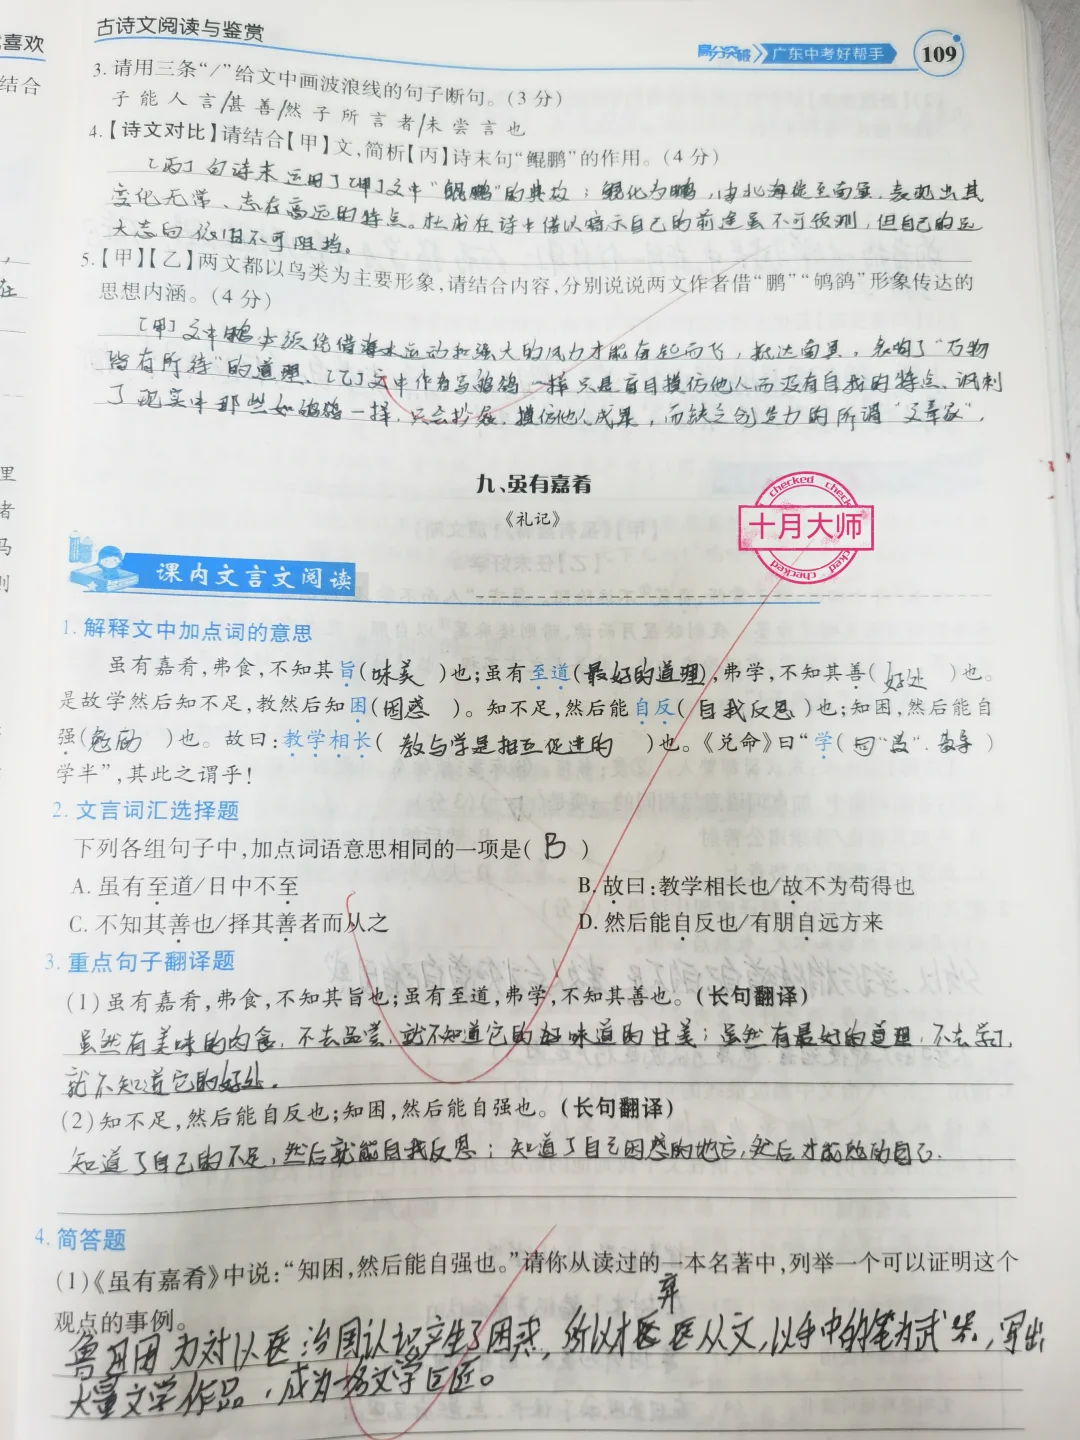 喜欢
结合
在
里
者
马
则
古诗文阅读与鉴赏
高分突破 广东中考好帮手 109
3.请用三条“/”给文中画波浪线的句子断句。(3分)
子能人言/甚善/然子所言者/未尝言也
4.【诗文对比】请结合【甲】文,简析【丙】诗末句“鲲鹏”的作用。(4分)
【丙】句诗末运用了【甲】文中“鲲鹏”的典故;鲲化为鹏,由北海徙至南冥,表现出其
变化无常、志在高远的特点。杜甫在诗中借以暗示自己的前途虽不可预测,但自己的远
大志向依旧不可阻挡。
5.【甲】【乙】两文都以鸟类为主要形象,请结合内容,分别说说两文作者借“鹏”“鸲鹆”形象传达的
思想内涵。(4分)
【甲】文中鹏必须凭借海水运动和强大的风力才能奋起而飞,抵达南冥,表明了“万物
皆有所待”的道理、【乙】文中作者写鸲鹆一样只是盲目模仿他人而没有自我的特点、讽刺
了现实中那些如鸲鹆一样,只会抄袭、模仿他人成果,而缺乏创造力的所谓“文章家”.
九、虽有嘉肴
《礼记》
checked
十月大师
checked
课内文言文阅读
1.解释文中加点词的意思
虽有嘉肴,弗食,不知其旨(味美)也;虽有至道(最好的道理),弗学,不知其善(好处)也。
是故学然后知不足,教然后知困(困惑)。知不足,然后能自反(自我反思)也;知困,然后能自
强(勉励)也。故曰:教学相长(教与学是相互促进的)也。《兑命》曰“学(同“敩”.教导)
学半”,其此之谓乎!
2.文言词汇选择题
下列各组句子中,加点词语意思相同的一项是(B)
A.虽有至道/日中不至 B.故曰:教学相长也/故不为苟得也
C.不知其善也/择其善者而从之 D.然后能自反也/有朋自远方来
3.重点句子翻译题
(1)虽有嘉肴,弗食,不知其旨也;虽有至道,弗学,不知其善也。(长句翻译)
虽然有美味的肉食,不去品尝,就不知道它的好味道的甘美;虽然有最好的道理,不去学习,
就不知道它的好处.
(2)知不足,然后能自反也;知困,然后能自强也。(长句翻译)
知道了自己的不足,然后就能自我反思;知道了自己困惑的地方,然后才能勉励自己.
4.简答题
(1)《虽有嘉肴》中说:“知困,然后能自强也。”请你从读过的一本名著中,列举一个可以证明这个
观点的事例。
弃
鲁迅因为对以医治国认识产生了困惑,所以才医从文,以手中的笔为武器,写出
大量文学作品,成为一名文学巨匠。